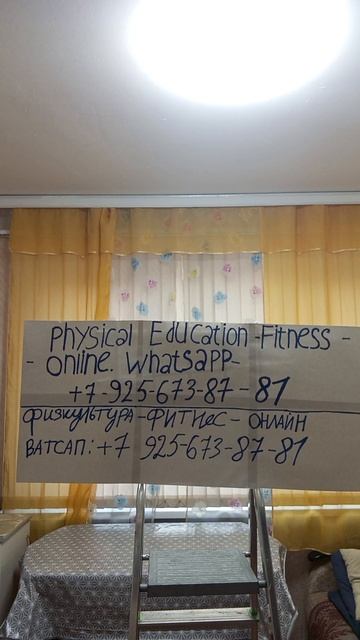 Physical Education-Fitness -
- Online. WhatsAPP-
+7-925-673-87-81
ФИЗКУЛЬТУРА-ФИТНес- ОНЛАЙН
ВАТСАП: +7 925-673-87-81